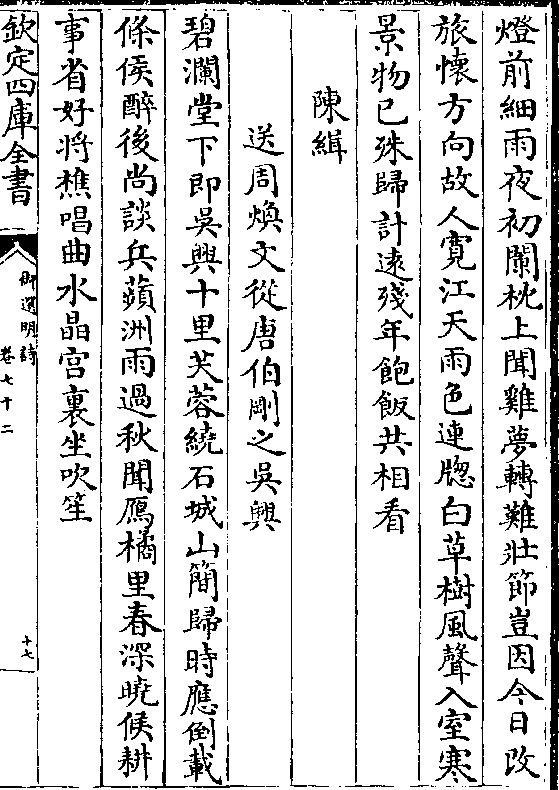 燈前細雨夜初闌枕上聞雞夢轉難壯節豈因今日改
旅懷方向故人寛江天雨色連牕白草樹風聲入室寒
景物已殊歸計逺殘年飽飯共相看
陳緝
送周煥文從唐伯剛之吳興
碧瀾堂下即吳興十里芙蓉繞石城山簡歸時應倒載
條侯醉後尚談兵蘋洲雨過秋聞鴈橘里春深曉候耕
事省好將樵唱曲水晶宫裏坐吹笙
欽定四庫全書
御選明詩
卷七十二
十七